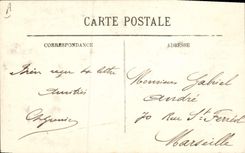 A
CARTE POSTALE
CORRESPONDANCE
ADRESSE
Bien reçu ta lettre
Amitiés
Monsieur Gabriel
André
70 Rue St Ferréol
Marseille